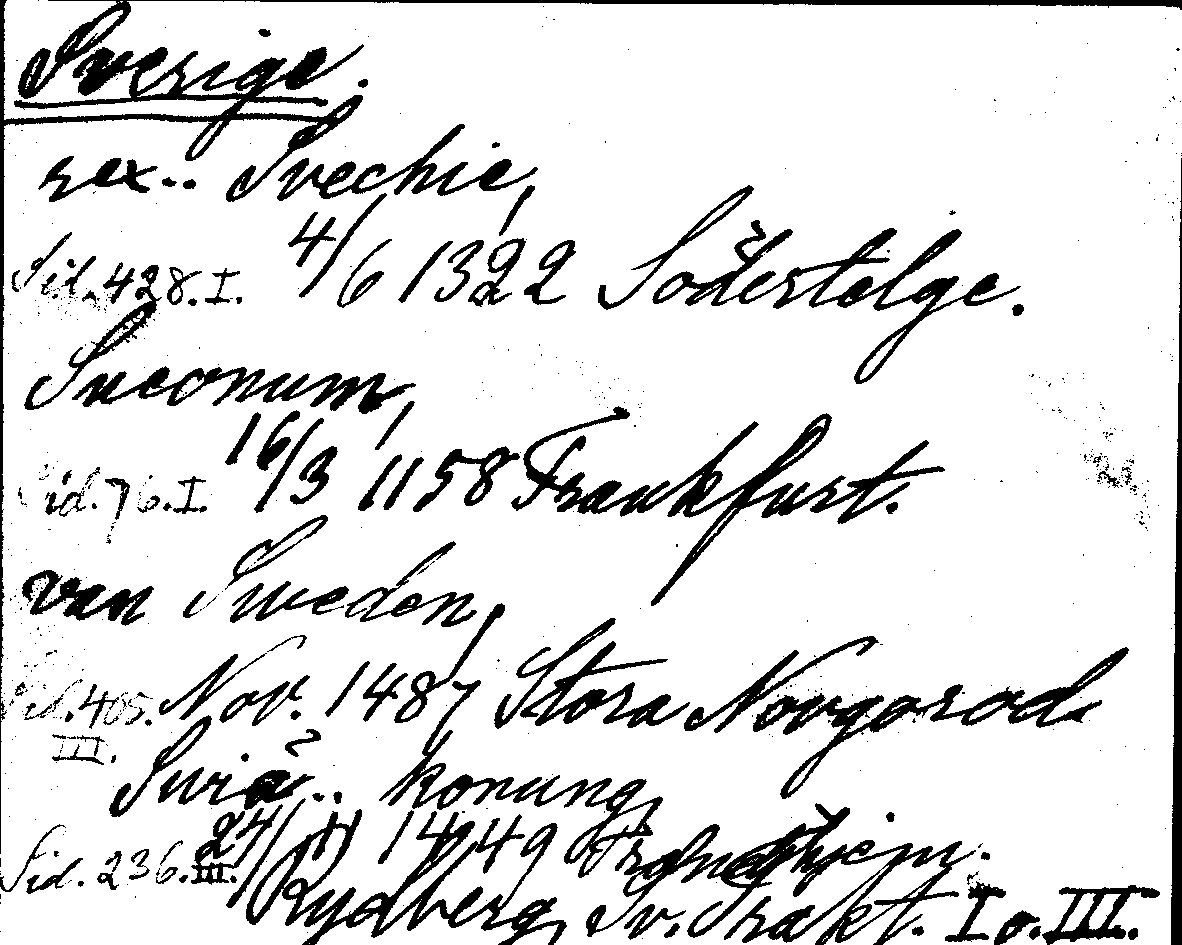 Sverige.
rex.. Svechie,
Sid. 428. I. 4/6 1322 Södertelge.
Sveonum,
Sid. 76. I. 16/3 1158 Frankfurt.
van Sweden,
Sid. 405. III. Nov. 1487 Stora Novgorod.
Swiä.. konung,
Sid. 236. III. 24/11 1449
Rydberg, Sv. Trakt. I o. III.